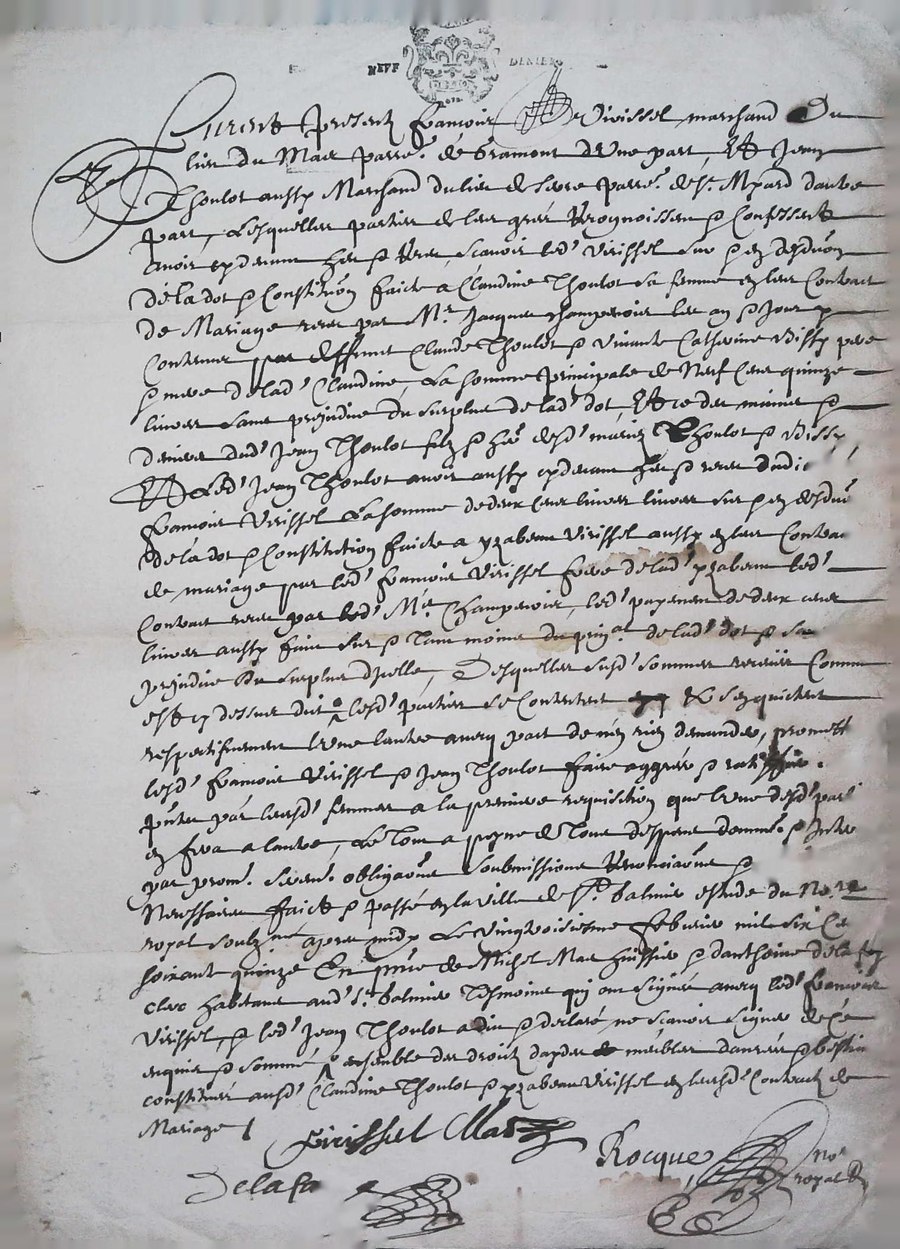 NEUF DENIERS
Furent presentz Francois Verissel marchand du
lieu du Mas parr.e de Gramont d'une part, Et Jean
Thoulot aussy Marchand du lieu de parr.e de St. Mpard dautre
part, Lesquelles parties de leur gré Recognoissent & Confessent
avoir cy devant heu & Receu, scavoir led' Verissel sur & en desduon
de la dot & Constituon faicte a Claudine Thoulot sa femme en leur Contract
de Mariage receu par Mr. Jacques Champenois les an & jour y
Contenus par deffunct Claude Thoulot & vivante Catherine Bissy pere
& mere de lad' Claudine, La somme principale de Neuf Cens quinze
livres sans prejudice du surplus de lad' dot, Et ce des mains &
deniers dud' Jean Thoulot filz & her' desd' mariez Thoulot & Bissy
Et Led' Jean Thoulot avoir aussy cy devant heu & receu dudi
Francois Verissel La somme de deux cens livres livres sur & en desdu
de la dot & Constitution faicte a yzabeau Verissel aussy en leur Contra
de mariage par led' Francois Verissel frere de lad' yzabeau led'
Contract receu par led' Mr. Champenois, led' payement de deux cens
livres aussy faict sur & tant moins du prin.al de lad' dot & sa
prejudice du surplus dycelle, Desquelles susd' sommes receues Comme
est cy dessus dict lesd' parties se Contentent et sen quictent
respectivement lune lautre avecq pact de nen rien demander, promett
lesd' Francois Verissel & Jean Thoulot faire aggreer & ratiffier
pntes par leursd' femmes a la premiere requisition que lune desd' part
en fera a lautre, Le tout a peyne de tous despens domm. & Inter
par prom. serem. obligaons soubmissions Renonciaons &
Necessaires faict & passé en la ville de St. Galmier estude du No.re
royal soubz.né apres midy Le vingtroisiesme febvrier mil six Ce
soixant quinze En pnce de Michel Mas huissier & d'anthoine de la fay
clerc habitans aud' St. Galmier tesmoins qui ont signé avecq led' Francois
Verissel, & led' Jean Thoulot a dit & declaré ne scavoir signer de ce
enquis & sommé ensemble des droictz daydes meubles danrees & bestia
constitués ausd' Claudine Thoulot & yzabeau Verissel en leursd' Contractz de
Mariage
Verissel Mas
Rocque no.re
Delafa royal